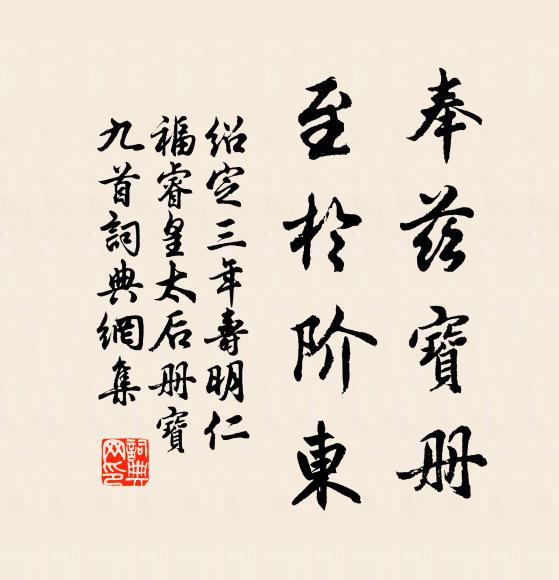 奉兹寶册
至於阶東
绍定三年壽明仁
福睿皇太后册寶
九首詞典網集
詞典網印